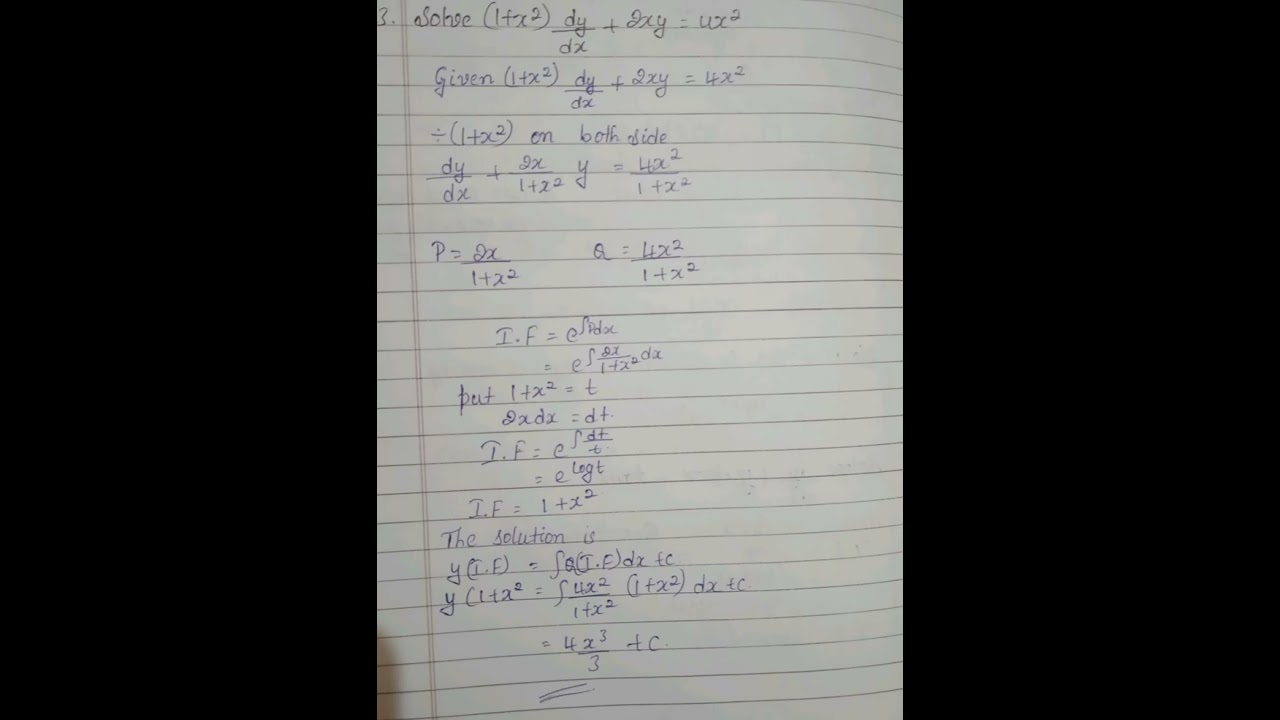 3. Solve (1+x²) dy/dx + 2xy = 4x²
Given (1+x²) dy/dx + 2xy = 4x²
÷(1+x²) on both side
dy/dx + 2x/1+x² y = 4x²/1+x²
P = 2x/1+x² Q = 4x²/1+x²
I.F = e^∫Pdx
= e^∫2x/1+x² dx
put 1+x² = t
2xdx = dt.
I.F = e^∫dt/t.
= e^logt
I.F = 1+x²
The solution is
y(I.F) = ∫Q(I.F)dx +c
y(1+x² = ∫4x²/1+x² (1+x²) dx +c.
= 4x³/3 +c.